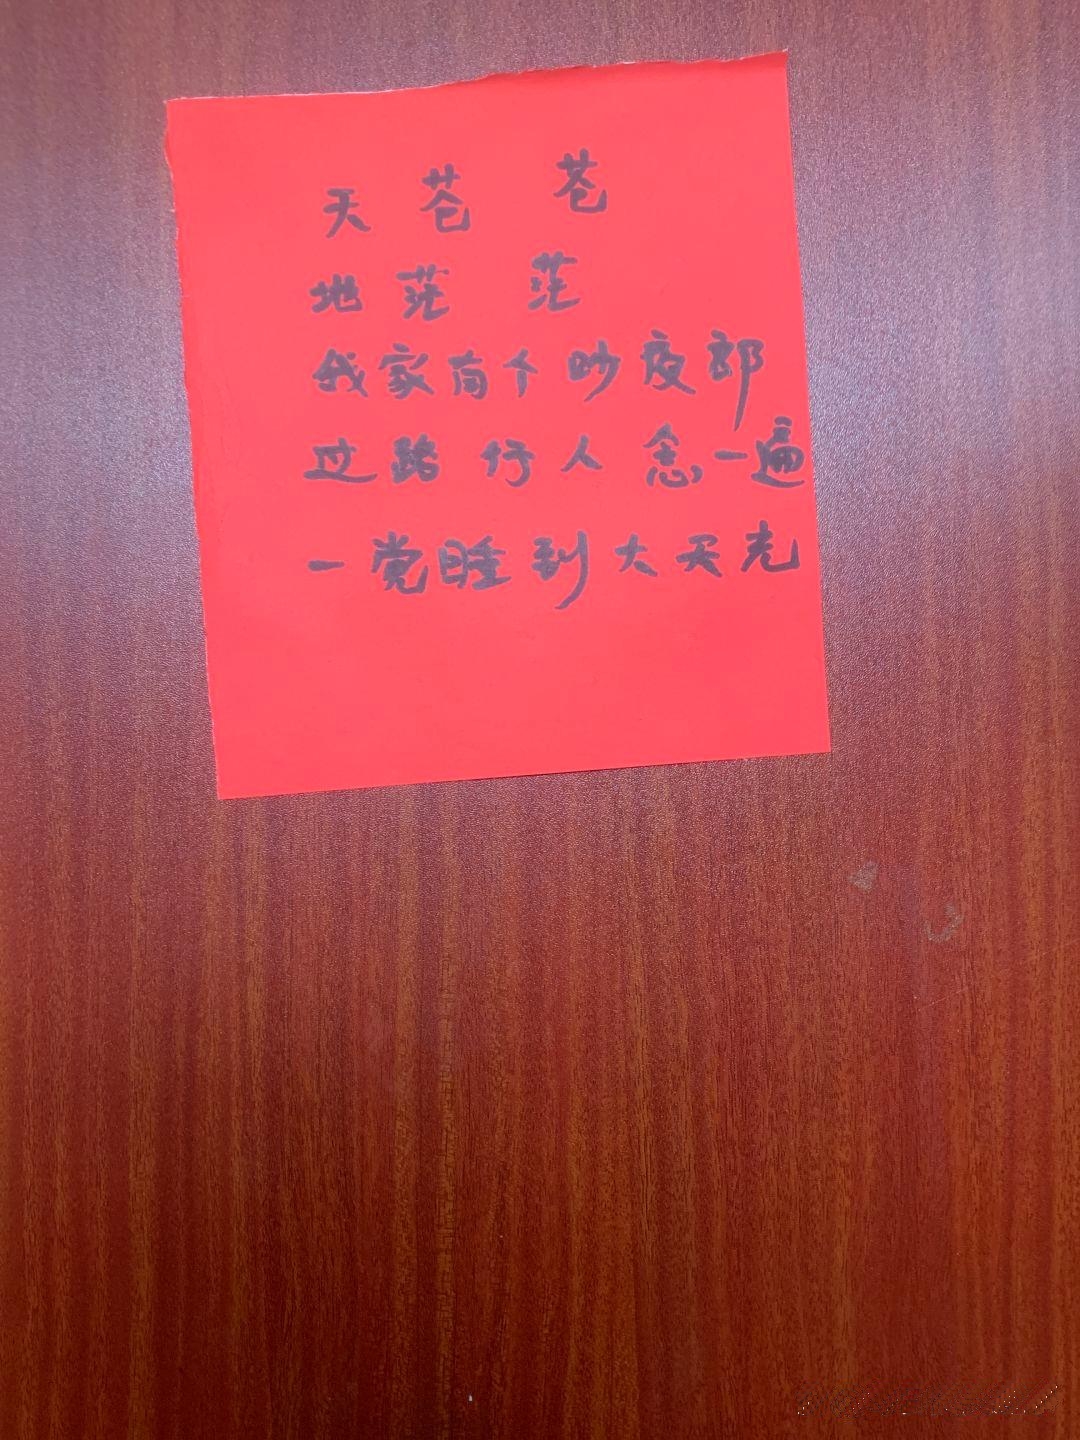 天苍苍
地茫茫
我家有个吵夜郎
过路行人念一遍
一觉睡到大天光